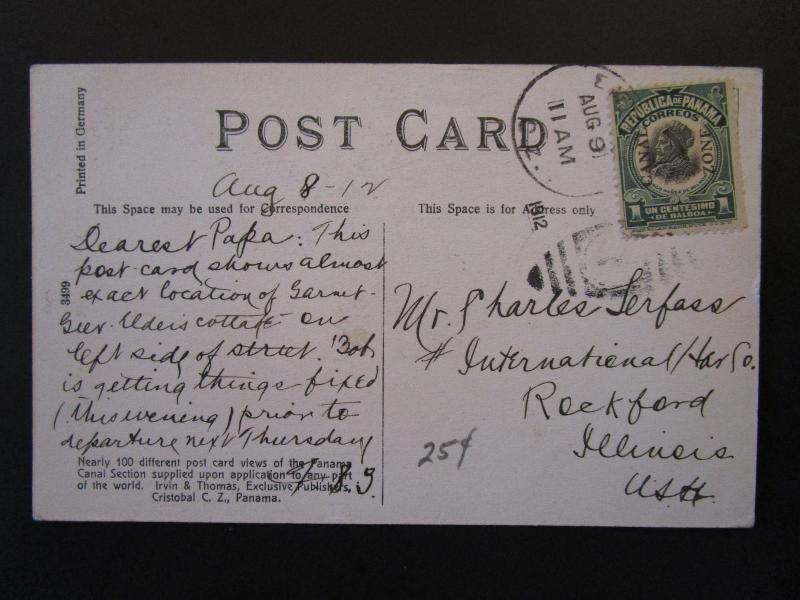 Printed in Germany
POST CARD
Aug 8-12
This Space may be used for Correspondence
This Space is for Address only
Dearest Papa: This
post-card shows almost
exact location of
cottage on
left side of street. Bob
is getting things fixed
(this evening) prior to
departure next Thursday
3499
Nearly 100 different post card views of the Panama
Canal Section supplied upon application to any part
of the world. Irvin & Thomas, Exclusive Publishers,
Cristobal C. Z., Panama.
AUG 9
11 AM
1912
Z.
REPUBLICA DE PANAMA
CORREOS
CANAL ZONE
1 UN CENTESIMO 1
DE BALBOA
Mr. Charles Serfass
# International Har Co.
Rockford
Illinois
USA
25¢